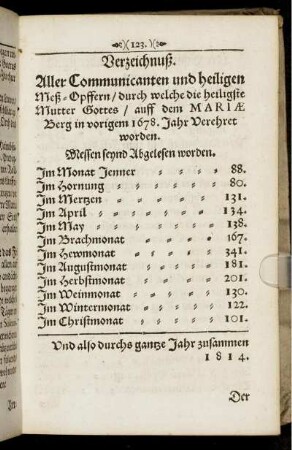 ( 123. )
Verzeichnuß.
Aller Communicanten und heiligen
Meß-Opffern / durch welche die heiligste
Mutter Gottes / auff dem MARIÆ
Berg in vorigem 1678. Jahr Verehret
worden.
Messen seynd Abgelesen worden.
Im Monat Jenner 88.
Im Hornung 80.
Im Mertzen 131.
Im April 134.
Im May 138.
Im Brachmonat 167.
Im Hewmonat 341.
Im Augustmonat 181.
Im Herbstmonat 201.
Im Weinmonat 130.
Im Wintermonat 122.
Im Christmonat 101.
Und also durchs gantze Jahr zusammen
1814.
Der